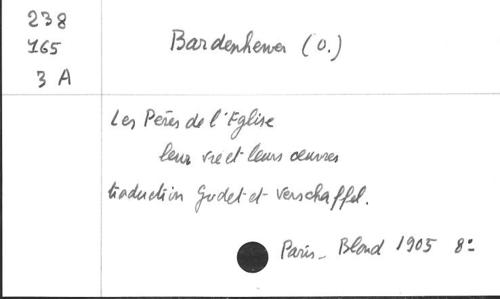 238
165
3 A
Bardenhewer (O.)
Les Pères de l'Eglise
leur vie et leurs œuvres
traduction Godet et Verschaffel.
Paris - Bloud 1905 8º